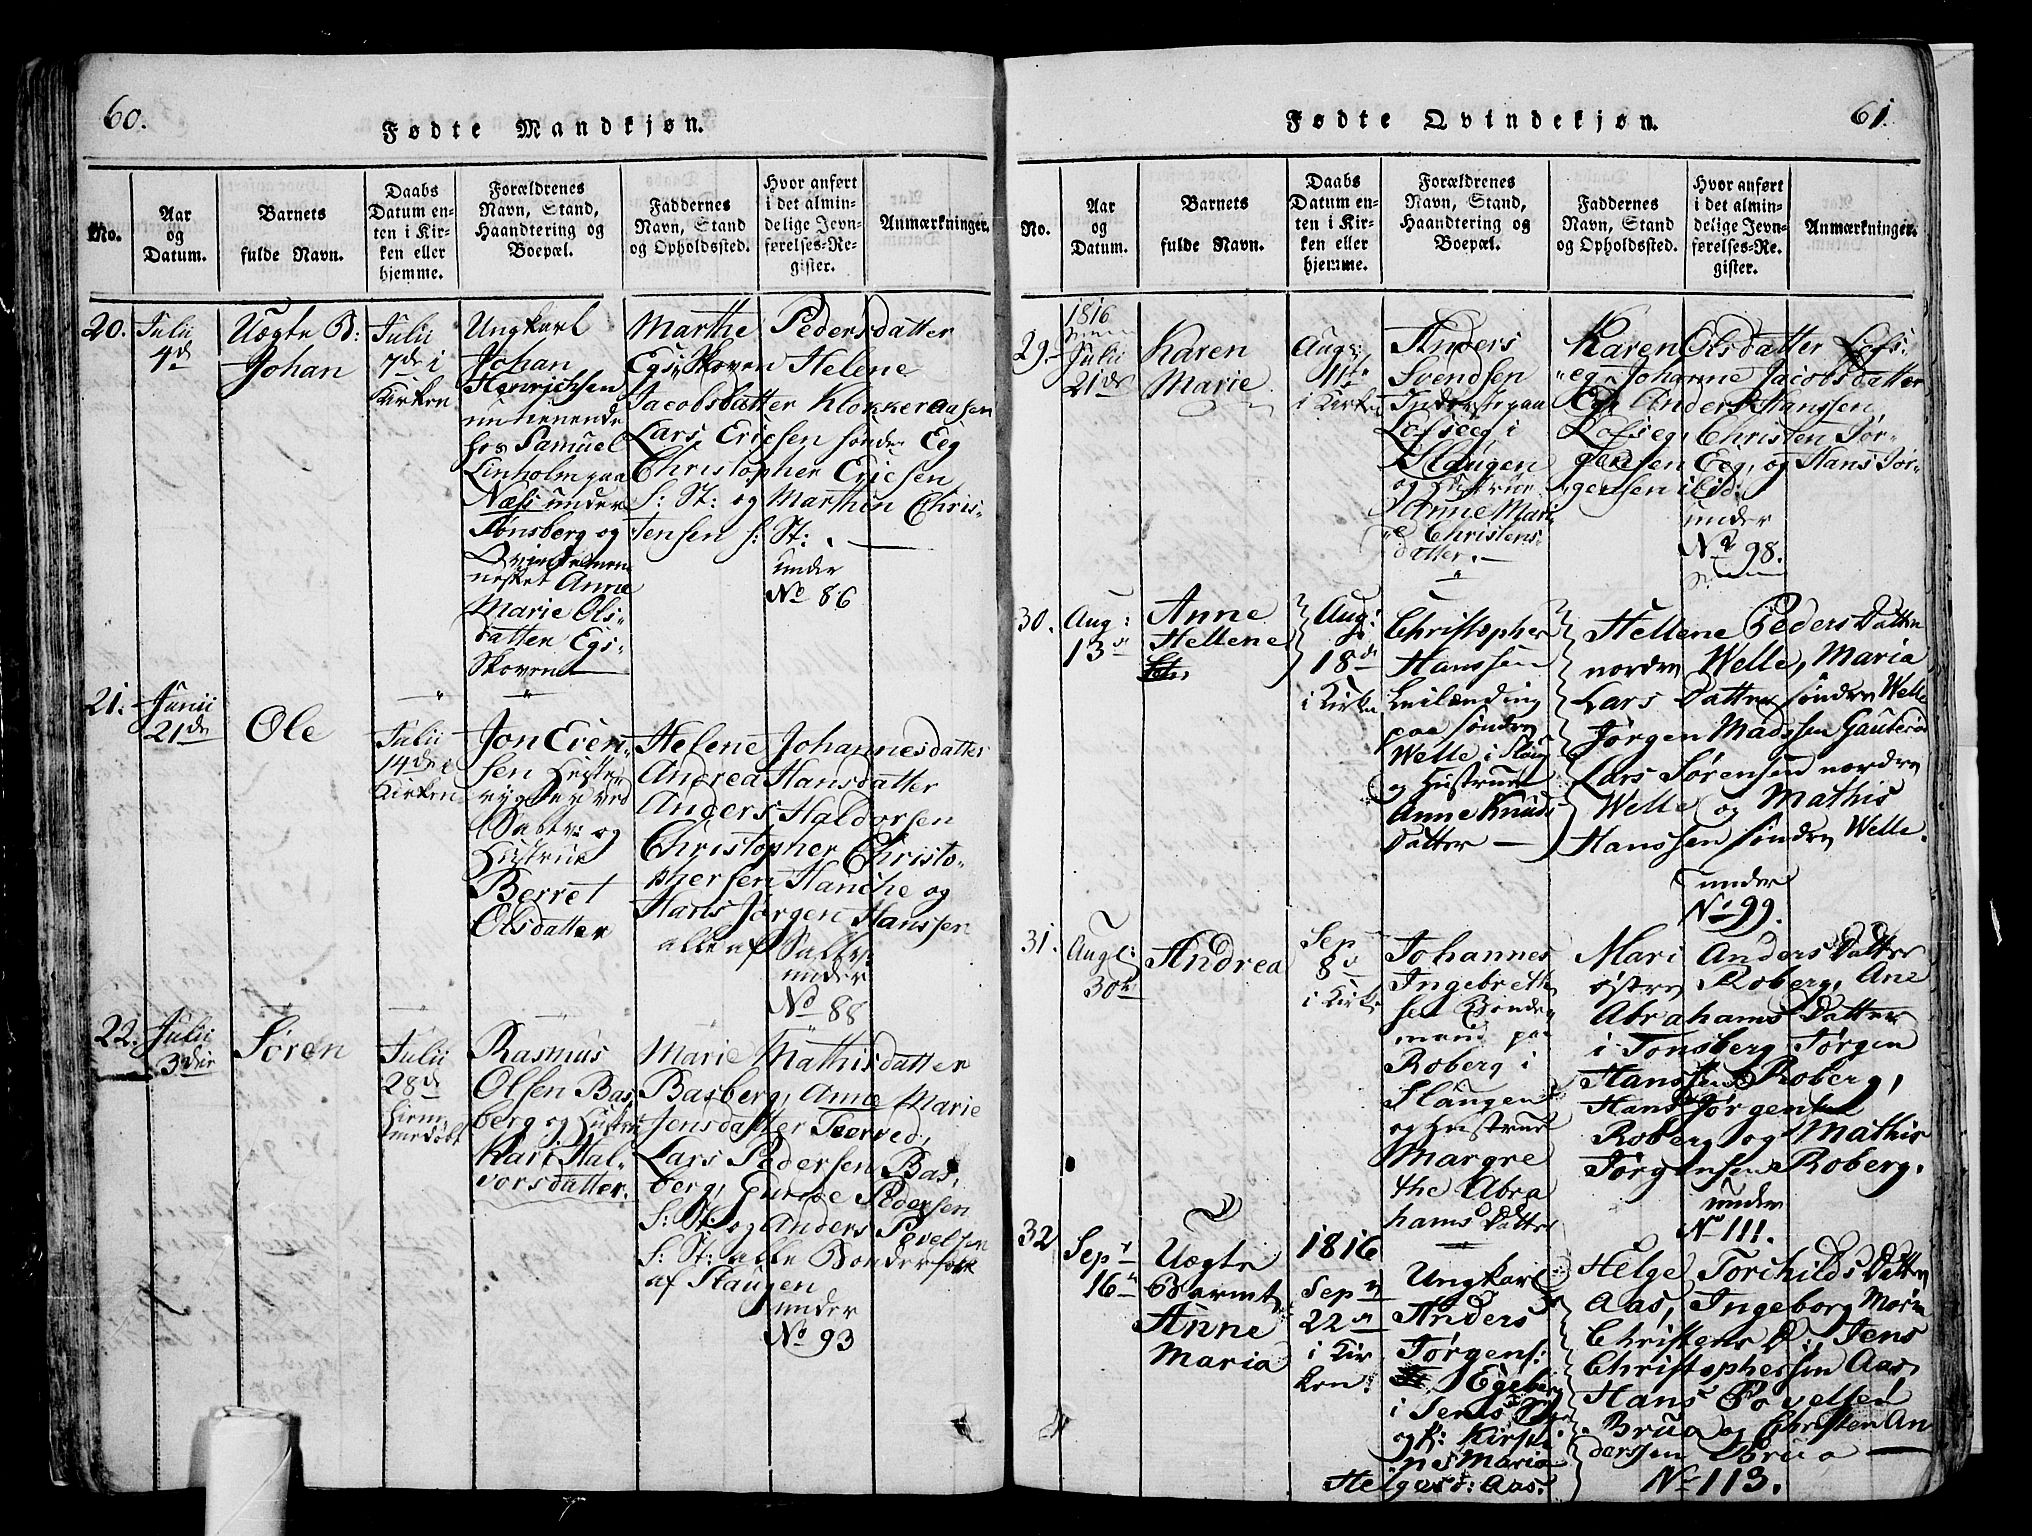 60.
Fødte Mandkjøn.
No.
Aar og Datum.
Barnets fulde Navn.
Daabs Datum enten i Kirken eller hjemme.
Forældrenes Navn, Stand, Haandtering og Boepæl.
Faddernes Navn, Stand og Opholdssted.
Hvor anført i det almindelige Jevnførelses-Register.
Anmærkninger.
20.
Julii
4de
Uægte B:
Johan
Julii
7de i
Kirken
Ungkarl
Johan
Henrichsen
hos Samuel
Linholm paa
Næss under
Tønsberg og
Anne
Marie Ols-
datter Egs-
Skoven
Marthe Pedersdatter
Egs Skoven Helene
Jacobsdatter Klokkeraasen
Lars Ericsen søndre Eeg
Christopher Ericsen
S: St: og Marthin Chris-
tensen S: St:
under
No 86
21.
Junii
21de
Ole
Julii
14de i
Kirken
Jon Even-
sen
og
Hustrue
Berret
Olsdatter
Helene Johannesdatter
Andrea Hansdatter
Anders Haldorsen
Christopher Christo-
phersen Hanche og
Hans Jørgen Hanssen
alle af
under
No 88
22.
Julii
3die
Søren
Julii
28de
hiem-
medøbt
Rasmus
Olsen Bas-
berg og Hustr:
Kari Hal-
vorsdatter.
Marie Mathisdatter
Basberg, Anne Marie
Jensdatter Tverved,
Lars Pedersen Bas-
berg, Gunde Pedersen
S: St: og Anders Povelsen
S: St: alle Bønderfolk
af Slaugen
under
No 93
61.
Fødte Qvindekjøn.
No.
Aar og Datum.
Barnets fulde Navn.
Daabs Datum enten i Kirken eller hjemme.
Forældrenes Navn, Stand, Haandtering og Boepæl.
Faddernes Navn, Stand og Opholdssted.
Hvor anført i det almindelige Jevnførelses-Register.
Anmærkninger.
29.
1816
Julii
21de
Karen
Marie
Aug:
11te
i Kirken
Anders
Svendsen
Inderste paa
Lofseeg i
Slaugen
og Hustrue
Anne Mari-
e Christens-
datter.
Karen Olsdatter Lofs-
eg, Johanne Jacobsdatter
Eg, Anders Hanssen,
Lofseg, Christen Jør-
gensen Eeg, og Hans Jør-
gensen ibid:
under
No 98.
30.
Aug:
13de
Anne
Hellene
Aug:
18de
i Kirken
Christopher
Hanssen
Leilænding
paa søndre
Welle i Slaug:
og Hustrue
Anne Knuds
Datter
Hellene Peders Datter
nordre Welle, Maria
Lars Datter søndre Welle
Jørgen Madssen
Lars Sørensen nordre
Welle og Mathis
Hanssen søndre Welle.
under
No 99.
31.
Aug:
30te
Andrea
Sep
8de
i Kirken
Johannes
Ingebreth-
sen Bonde-
mand paa
Roberg i
Slaugen
og Hustrue
Margre
the Abra
hams Datter
Mari Anders Datter
østre Roberg, Ane
Abrahams Datter
i Tonsberg Jørgen
Hanssen Roberg,
Hans Jørgensen
Roberg og Mathis
Jørgensen Roberg.
under
No 111.
32
Sep
16de
Uægte
Barnet
Anne
Maria
1816
Sep
22de
i Kir
ken:
Ungkarl
Anders
Jørgens:
Egeberg
i
og P: Kirsti
ne Maria
Helges D: Aas.
Helge Torchilds Datter
Aas, Ingeborg
Christens D: Jens
Christophersen Aas,
Hans Povelsen
Brua og Christen An
derssen Brua
No 113.